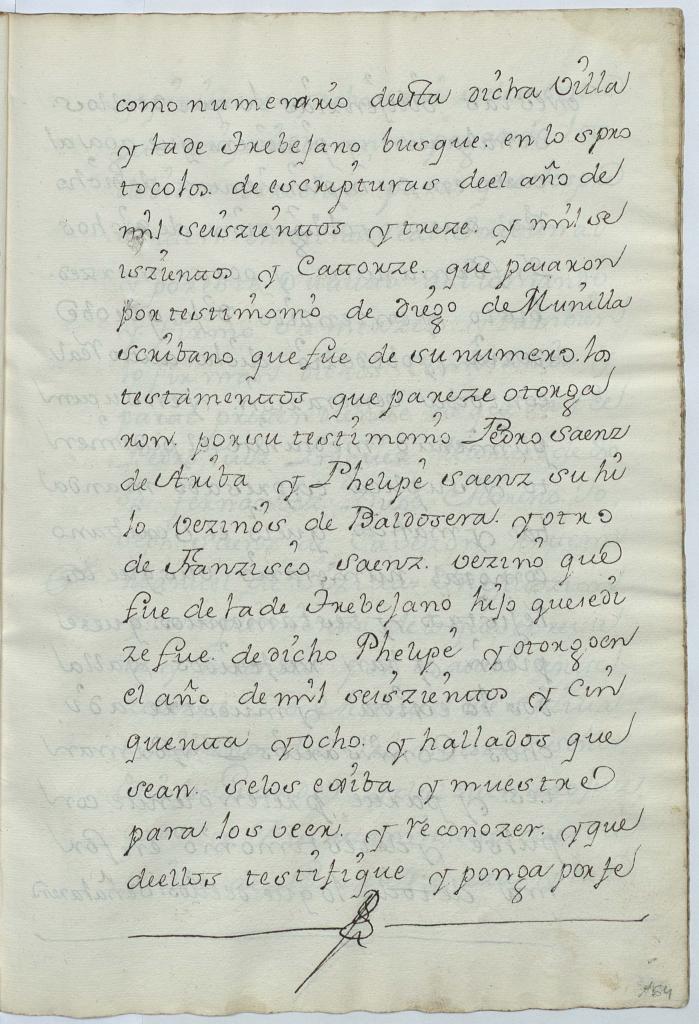 como numerario deesta dicha Villa
y la de Trebejano busque. en los pro
tocolos. de escripturas deel año de
mil seiszienttos y treze. y mil se
iszienttos y Cattorze. que pasaron
por testimonio de Diego de Munilla
scribano que fue de su numero. los
testamenttos que pareze otorga
ron. por su testimonio Pedro Saenz
de Ariba y Phelipe Saenz su hi
jo vezinos de Baldosera. y otro
de Franzisco Saenz. vezino que
fue de la de Trebejano hijo que se di
ze fue. de dicho Phelipe y otorgo en
el año de mil seiszienttos y Cin
quentta y ocho. y hallados que
sean. se los exiba y muestre
para los veer. y reconozer. y que
deellos testifique y ponga por fe